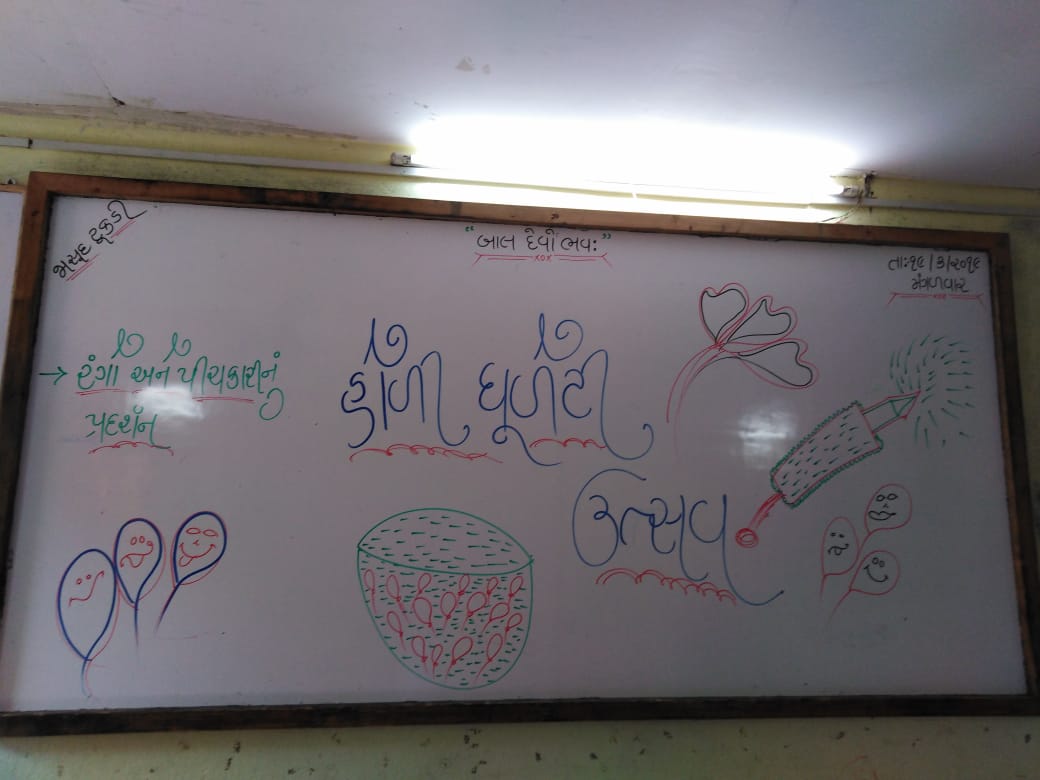 જાસૂદ ટૂકડી
"બાલ દેવો ભવઃ"
તાઃ૧૯/૩/૨૦૧૯
મંગળવાર
→ રંગો અને પીચકારીનું
પ્રદર્શન
હોળી ધૂળેટી
ઉત્સવ